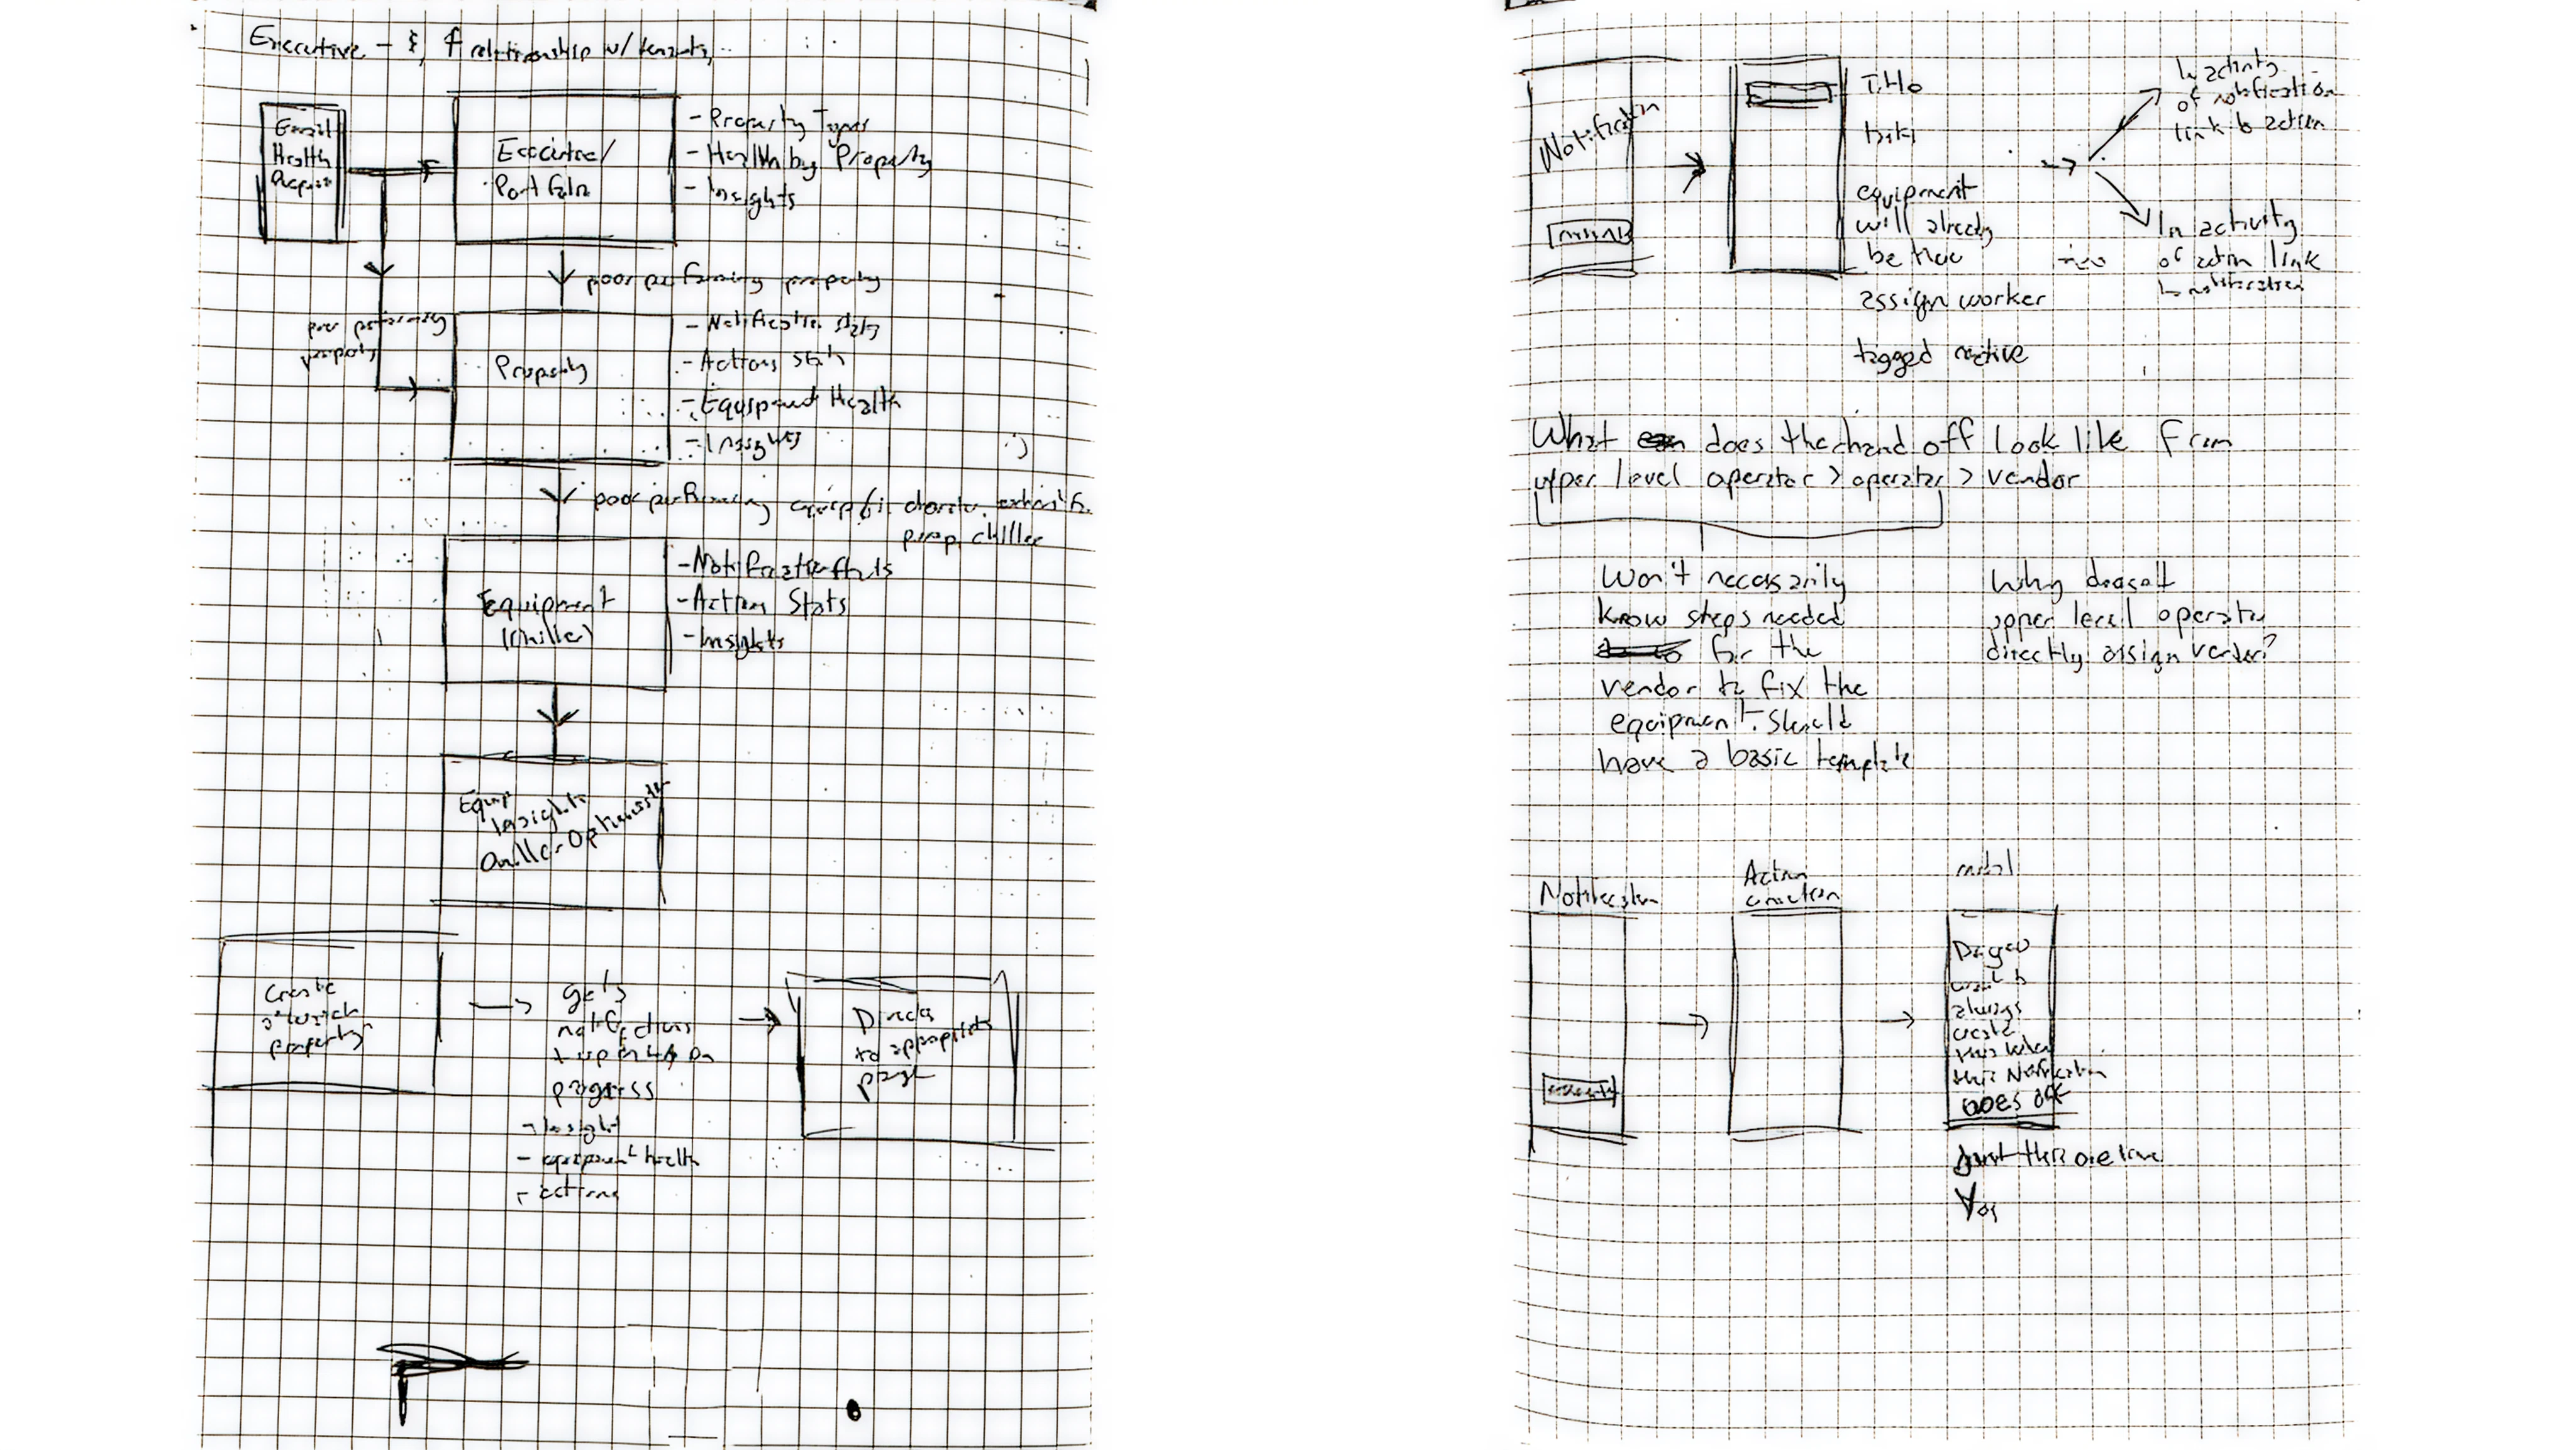 Executive - $, & relationship w/ tenants
Email
Health
Report
Executive/
Portfolio
- Property Types
- Health by Property
- Insights
poor performing property
poor performing
property
Property
- Notification stats
- Actions stats
- Equipment Health
- Insights
poor performing equip
pump, chiller
Equipment
(Chiller)
- Notification stats
- Action Stats
- Insights
Equip
Insights
Chiller Optimization
Create
property
gets
notifications
progress
- Insight
- equipment health
- actions
Directs
to appropriate
page
Notification
Title
equipment
will already
be here
assign worker
tagged active
In activity
of notification
link to action
In activity
of action link
to notification
What does the hand off look like from
upper level operator > operator > vendor
won't necessarily
know steps needed
for the
vendor to fix the
equipment. Should
have a basic template
Why doesn't
upper level operator
directly assign vendor?
Notification
Action
creation
modal
Do you
want to
always
create
this when
this Notification
GOES OFF
Just this one time